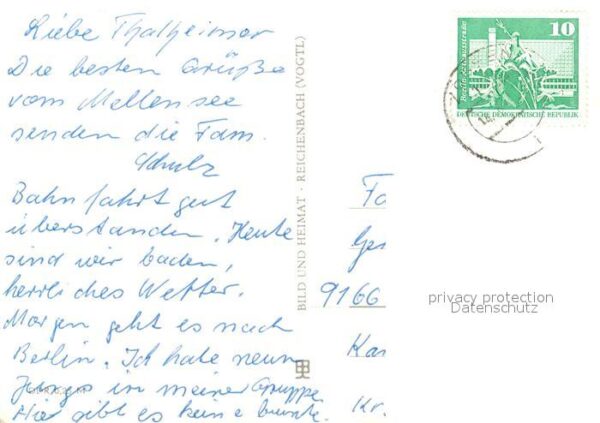 Liebe Thalheimer
Die besten Grüße
vom Mellensee
senden die Fam.
Schulz
Bahnfahrt gut
überstanden. Heute
sind wir baden,
herrliches Wetter.
Morgen geht es nach
Berlin. Ich habe neun
Jungs in meiner Gruppe
Hier gibt es keine
BILD UND HEIMAT · REICHENBACH (VOGTL)
10
DEUTSCHE DEMOKRATISCHE REPUBLIK
Fa
Ges
9166
Kar
Kr.
privacy protection
Datenschutz